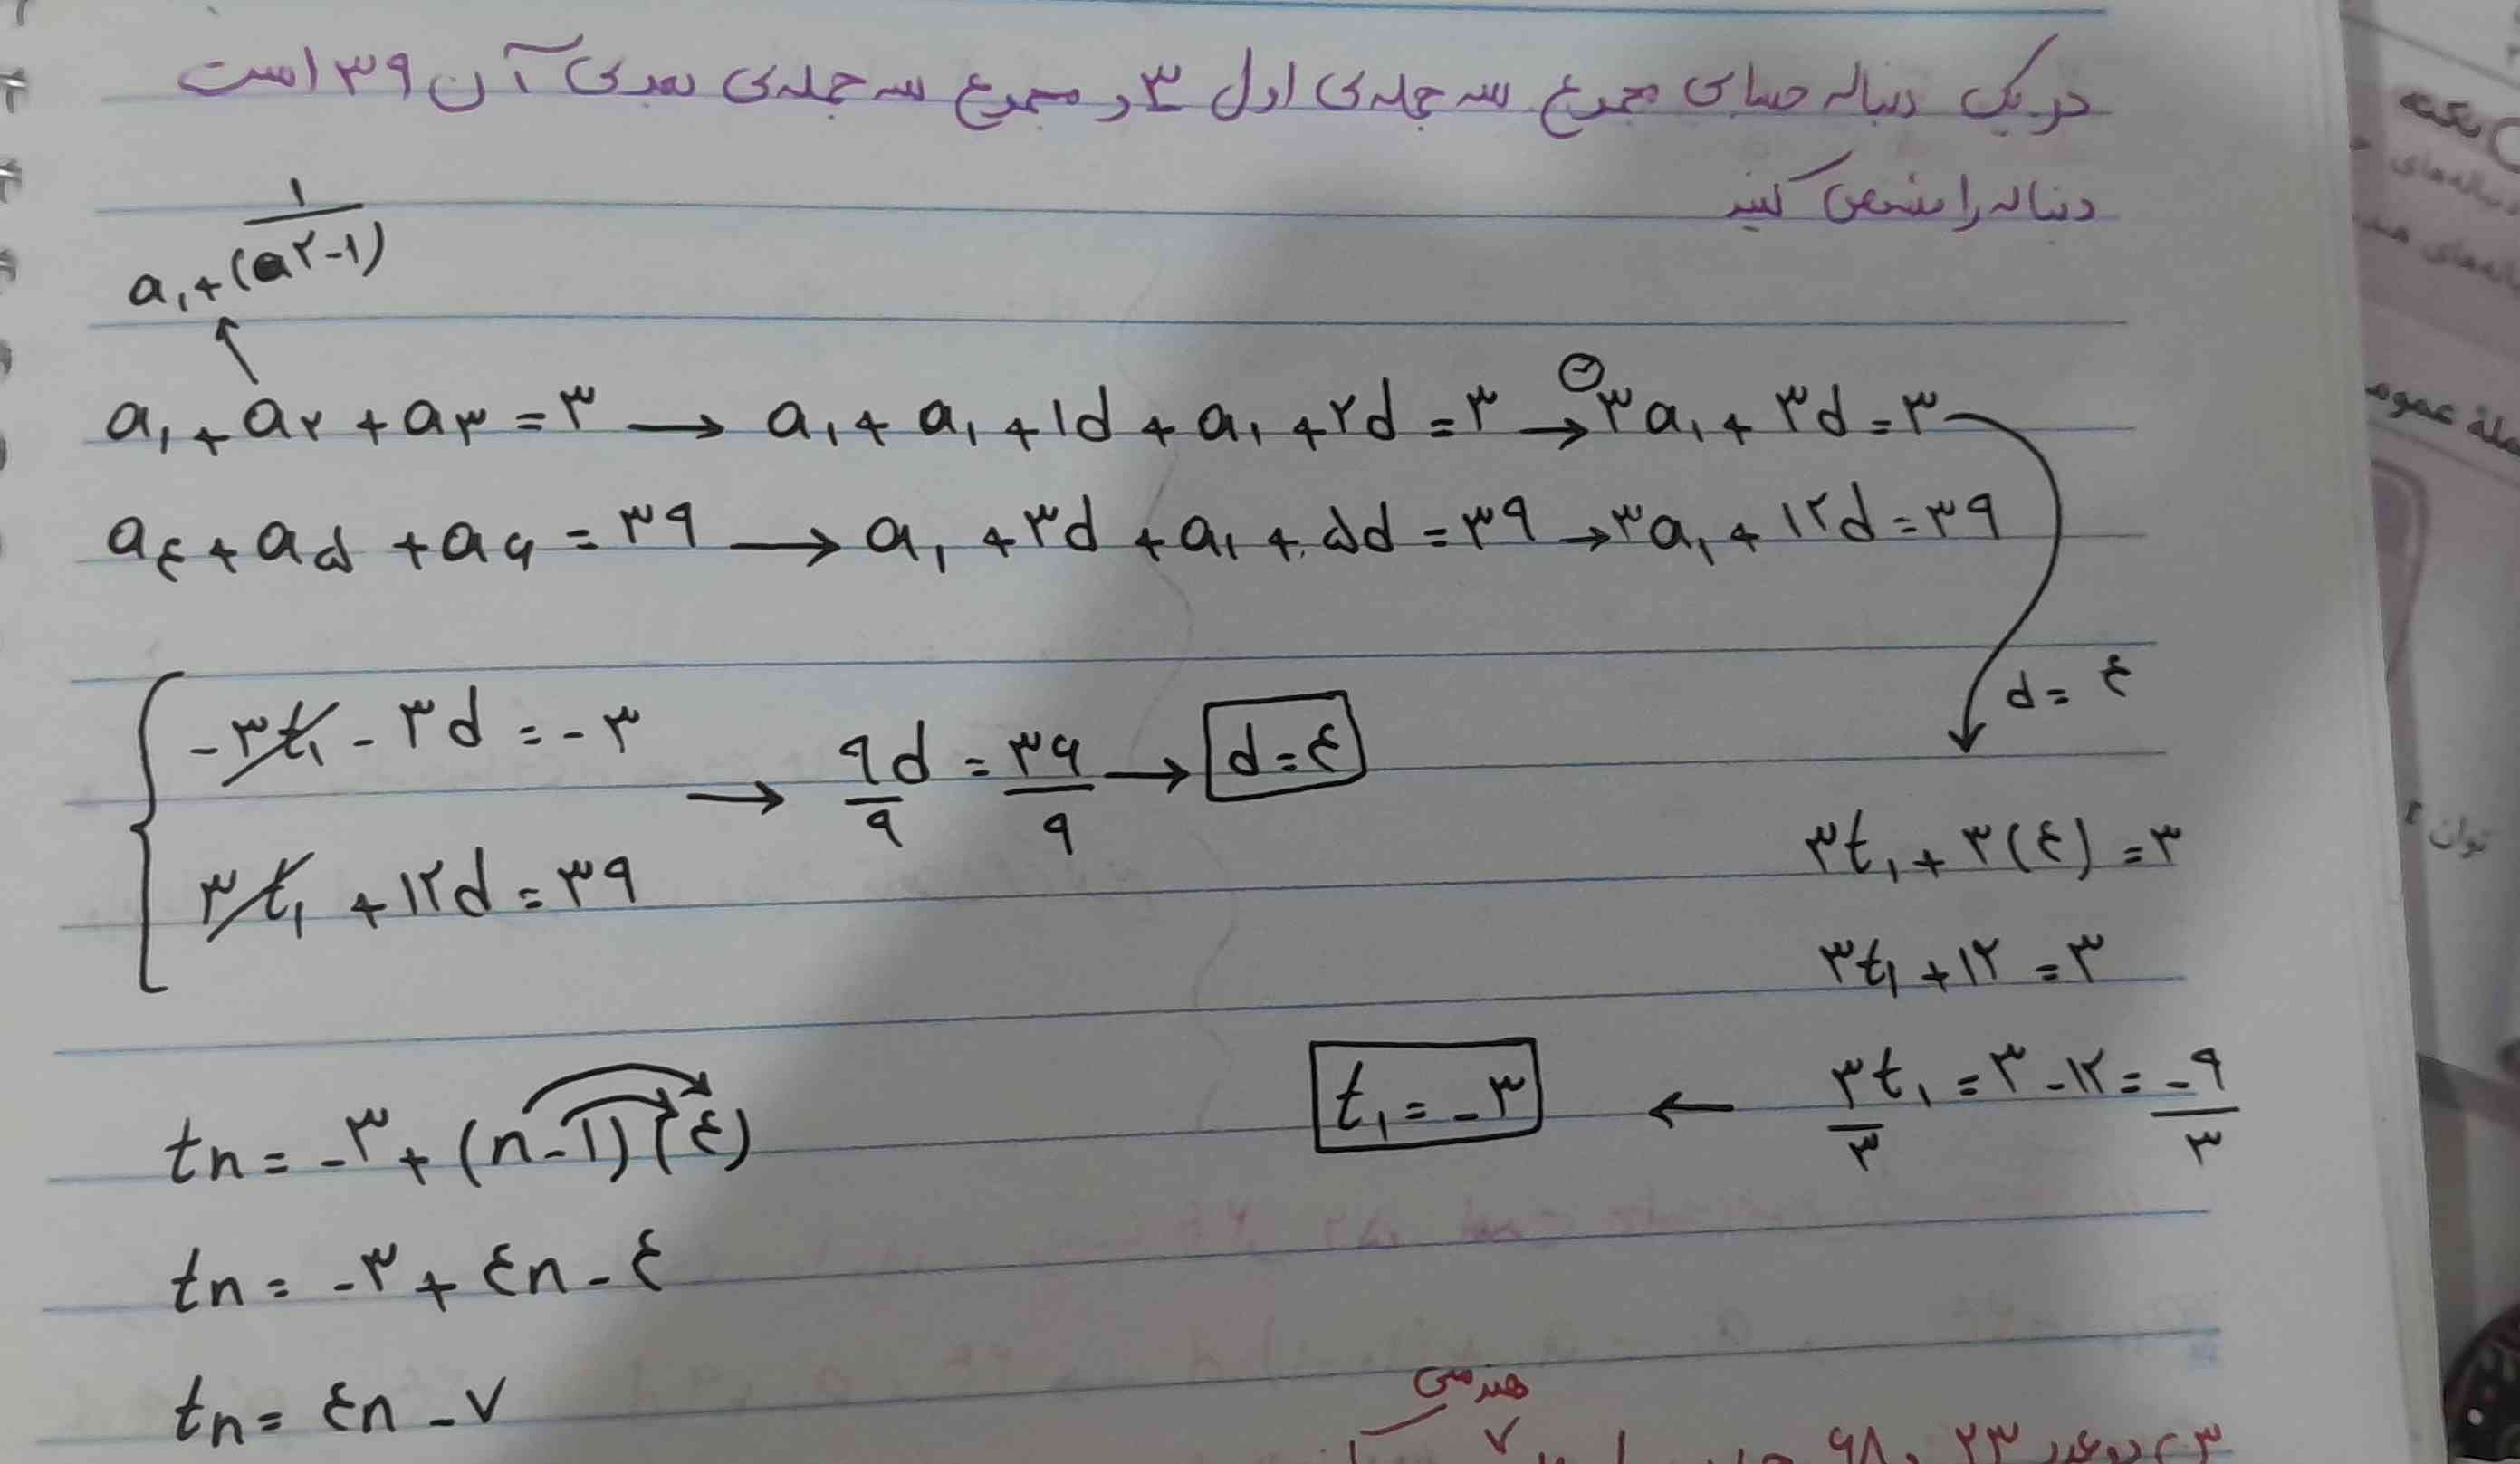 در یک دنباله حسابی مجموع سه جمله‌ی اول ۳ و مجموع سه جمله‌ی بعدی آن ۳۹ است
دنباله را مشخص کنید
۱
a₁ + (a۲-۱)
a₁ + a۲ + a۳ = ۳ → a₁ + a₁ + ۱d + a₁ + ۲d = ۳ → ۳a₁ + ۳d = ۳
a٤ + a۵ + a۶ = ۳۹ → a₁ + ۳d + a₁ + ۵d = ۳۹ → ۳a₁ + ۱۲d = ۳۹
d = ٤
-۳t₁ - ۳d = -۳
۳t₁ + ۱۲d = ۳۹
→ ۹d/۹ = ۳۶/۹ → d = ٤
۳t₁ + ۳(٤) = ۳
۳t₁ + ۱۲ = ۳
۳t₁/۳ = ۳ - ۱۲ = -۹/۳
← t₁ = -۳
tn = -۳ + (n-۱)(٤)
tn = -۳ + ٤n - ٤
tn = ٤n - ۷
هندسی
نکته
توان